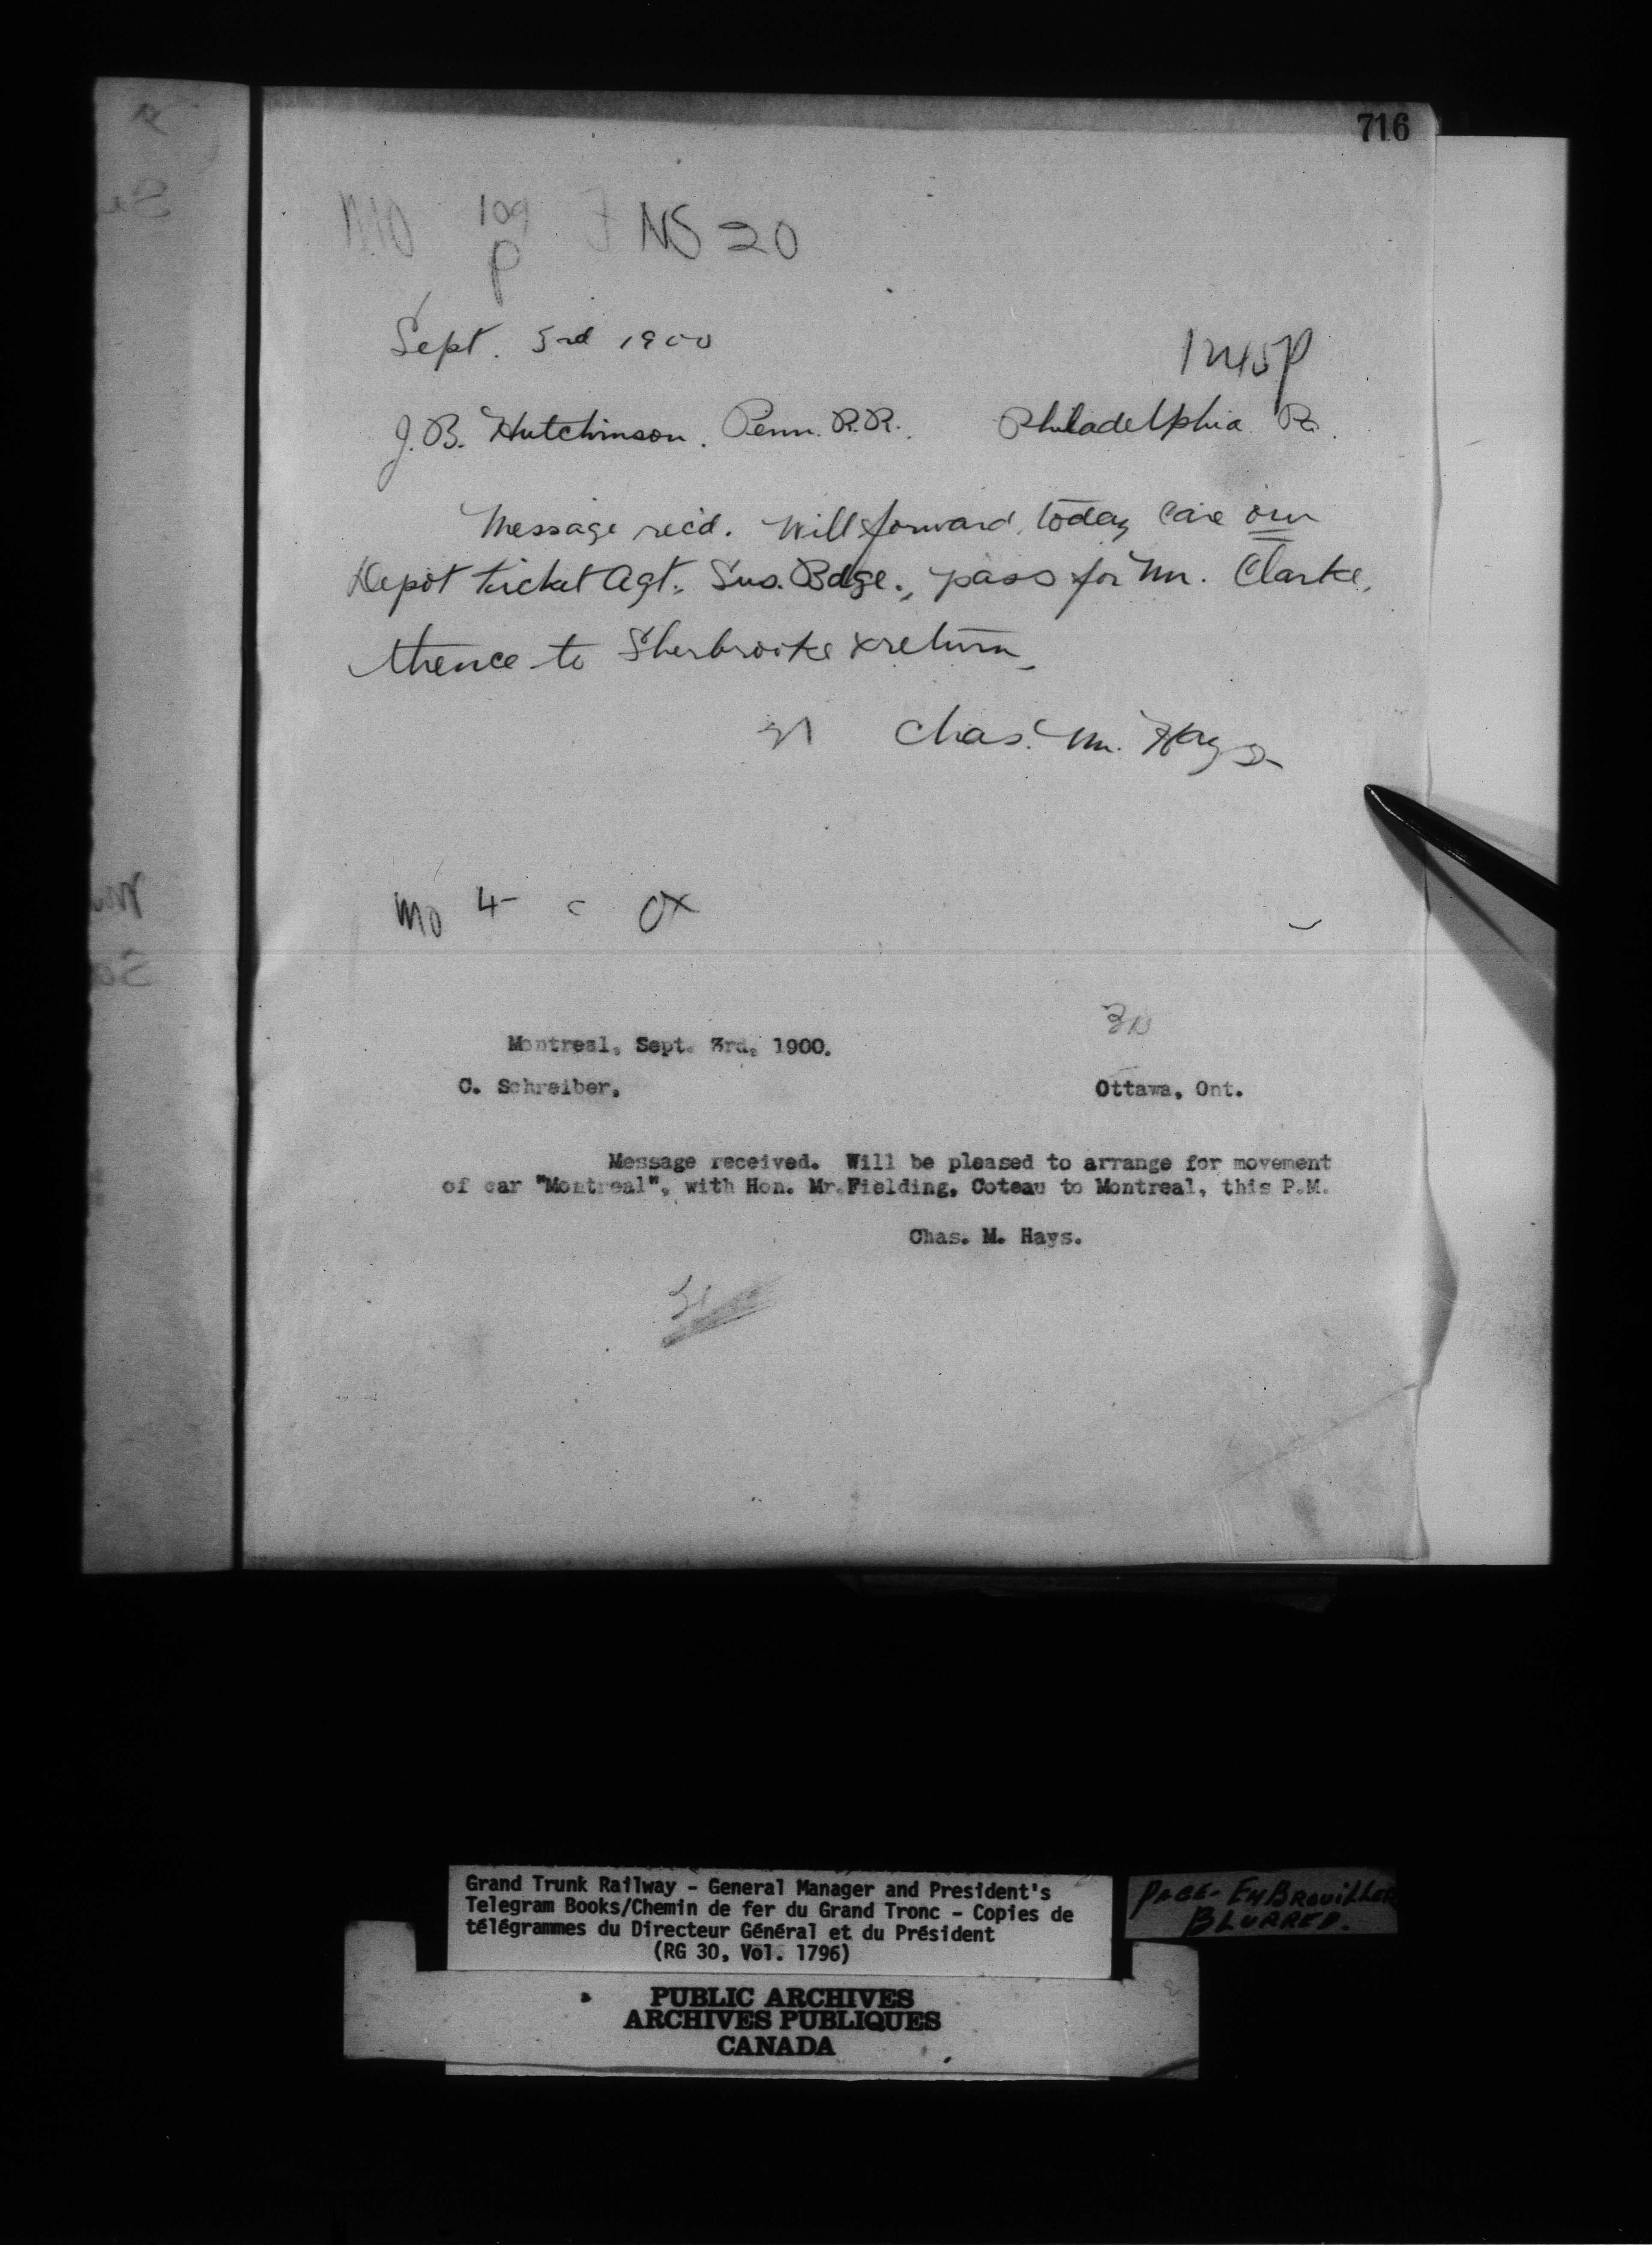 716
MO 109 NS 20
P
Sept. 3rd 1900
1245P
J. B. Hutchinson. Penn. R.R. Philadelphia Pa.
Message rec'd. Will forward today care our
Depot ticket Agt. Sus. Bdge., pass for Mr. Clarke,
thence to Sherbrooke & return.
Chas. M. Hays
MO 4 c OX
Montreal, Sept. 3rd, 1900.
C. Schreiber, Ottawa, Ont.
Message received. Will be pleased to arrange for movement
of car "Montreal", with Hon. Mr. Fielding, Coteau to Montreal, this P.M.
Chas. M. Hays.
Grand Trunk Railway - General Manager and President's
Telegram Books/Chemin de fer du Grand Tronc - Copies de
télégrammes du Directeur Général et du Président
(RG 30, Vol. 1796)
PAGE - EMBROUILLER
BLURRED.
PUBLIC ARCHIVES
ARCHIVES PUBLIQUES
CANADA